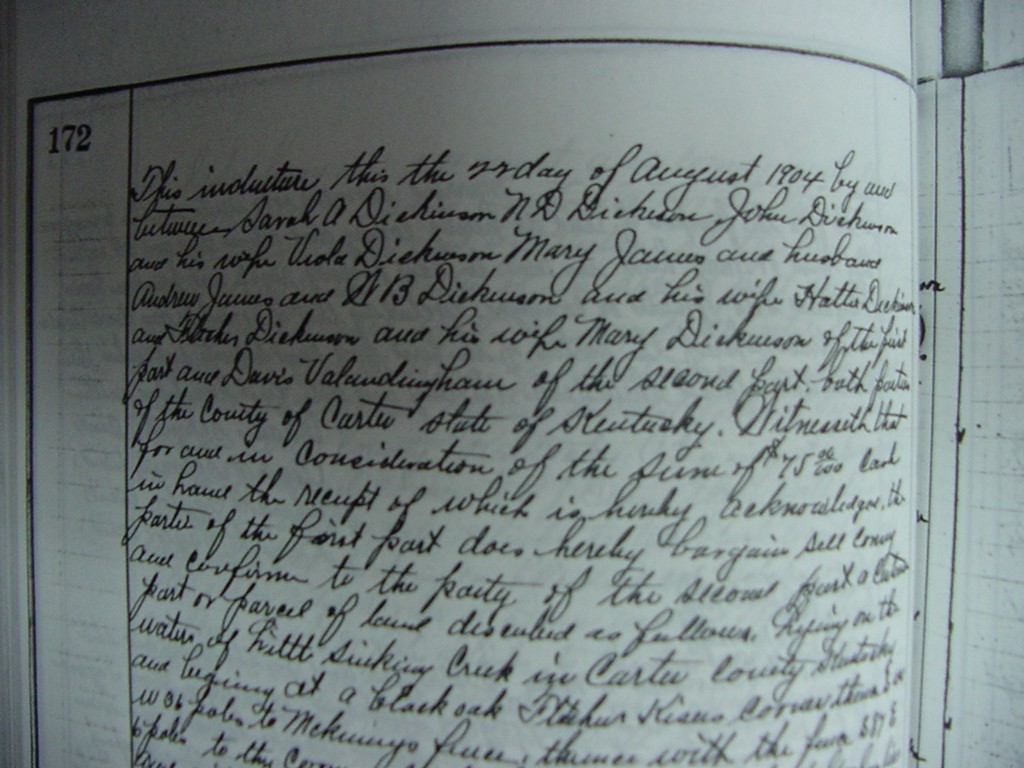 172
This indenture this the 22 day of August 1904 by and
between Sarah A Dickinson N D Dickeson John Dickinson
and his wife Viola Dickinson Mary James and husband
Andrew James and W B Dickinson and his wife Hattie Dickinson
and Dickinson and his wife Mary Dickinson of the first
part and Davis Valandingham of the second part. both parties
of the County of Carter state of Kentucky. Witnesseth that
for and in Consideration of the sum of $75 00/100 Cash
in hand the receipt of which is hereby acknowledges, the
partie of the first part does hereby bargain sell convey
and confirm to the party of the second part a Certain
part or parcel of land described as follows. Lying on the
waters of Little Sinking Creek in Carter County Kentucky
and begining at a black oak Fletcher Kisers corner thence S
W 36 poles to McKinneys fence, thence with the fence S 87 E
6 poles to the Corner